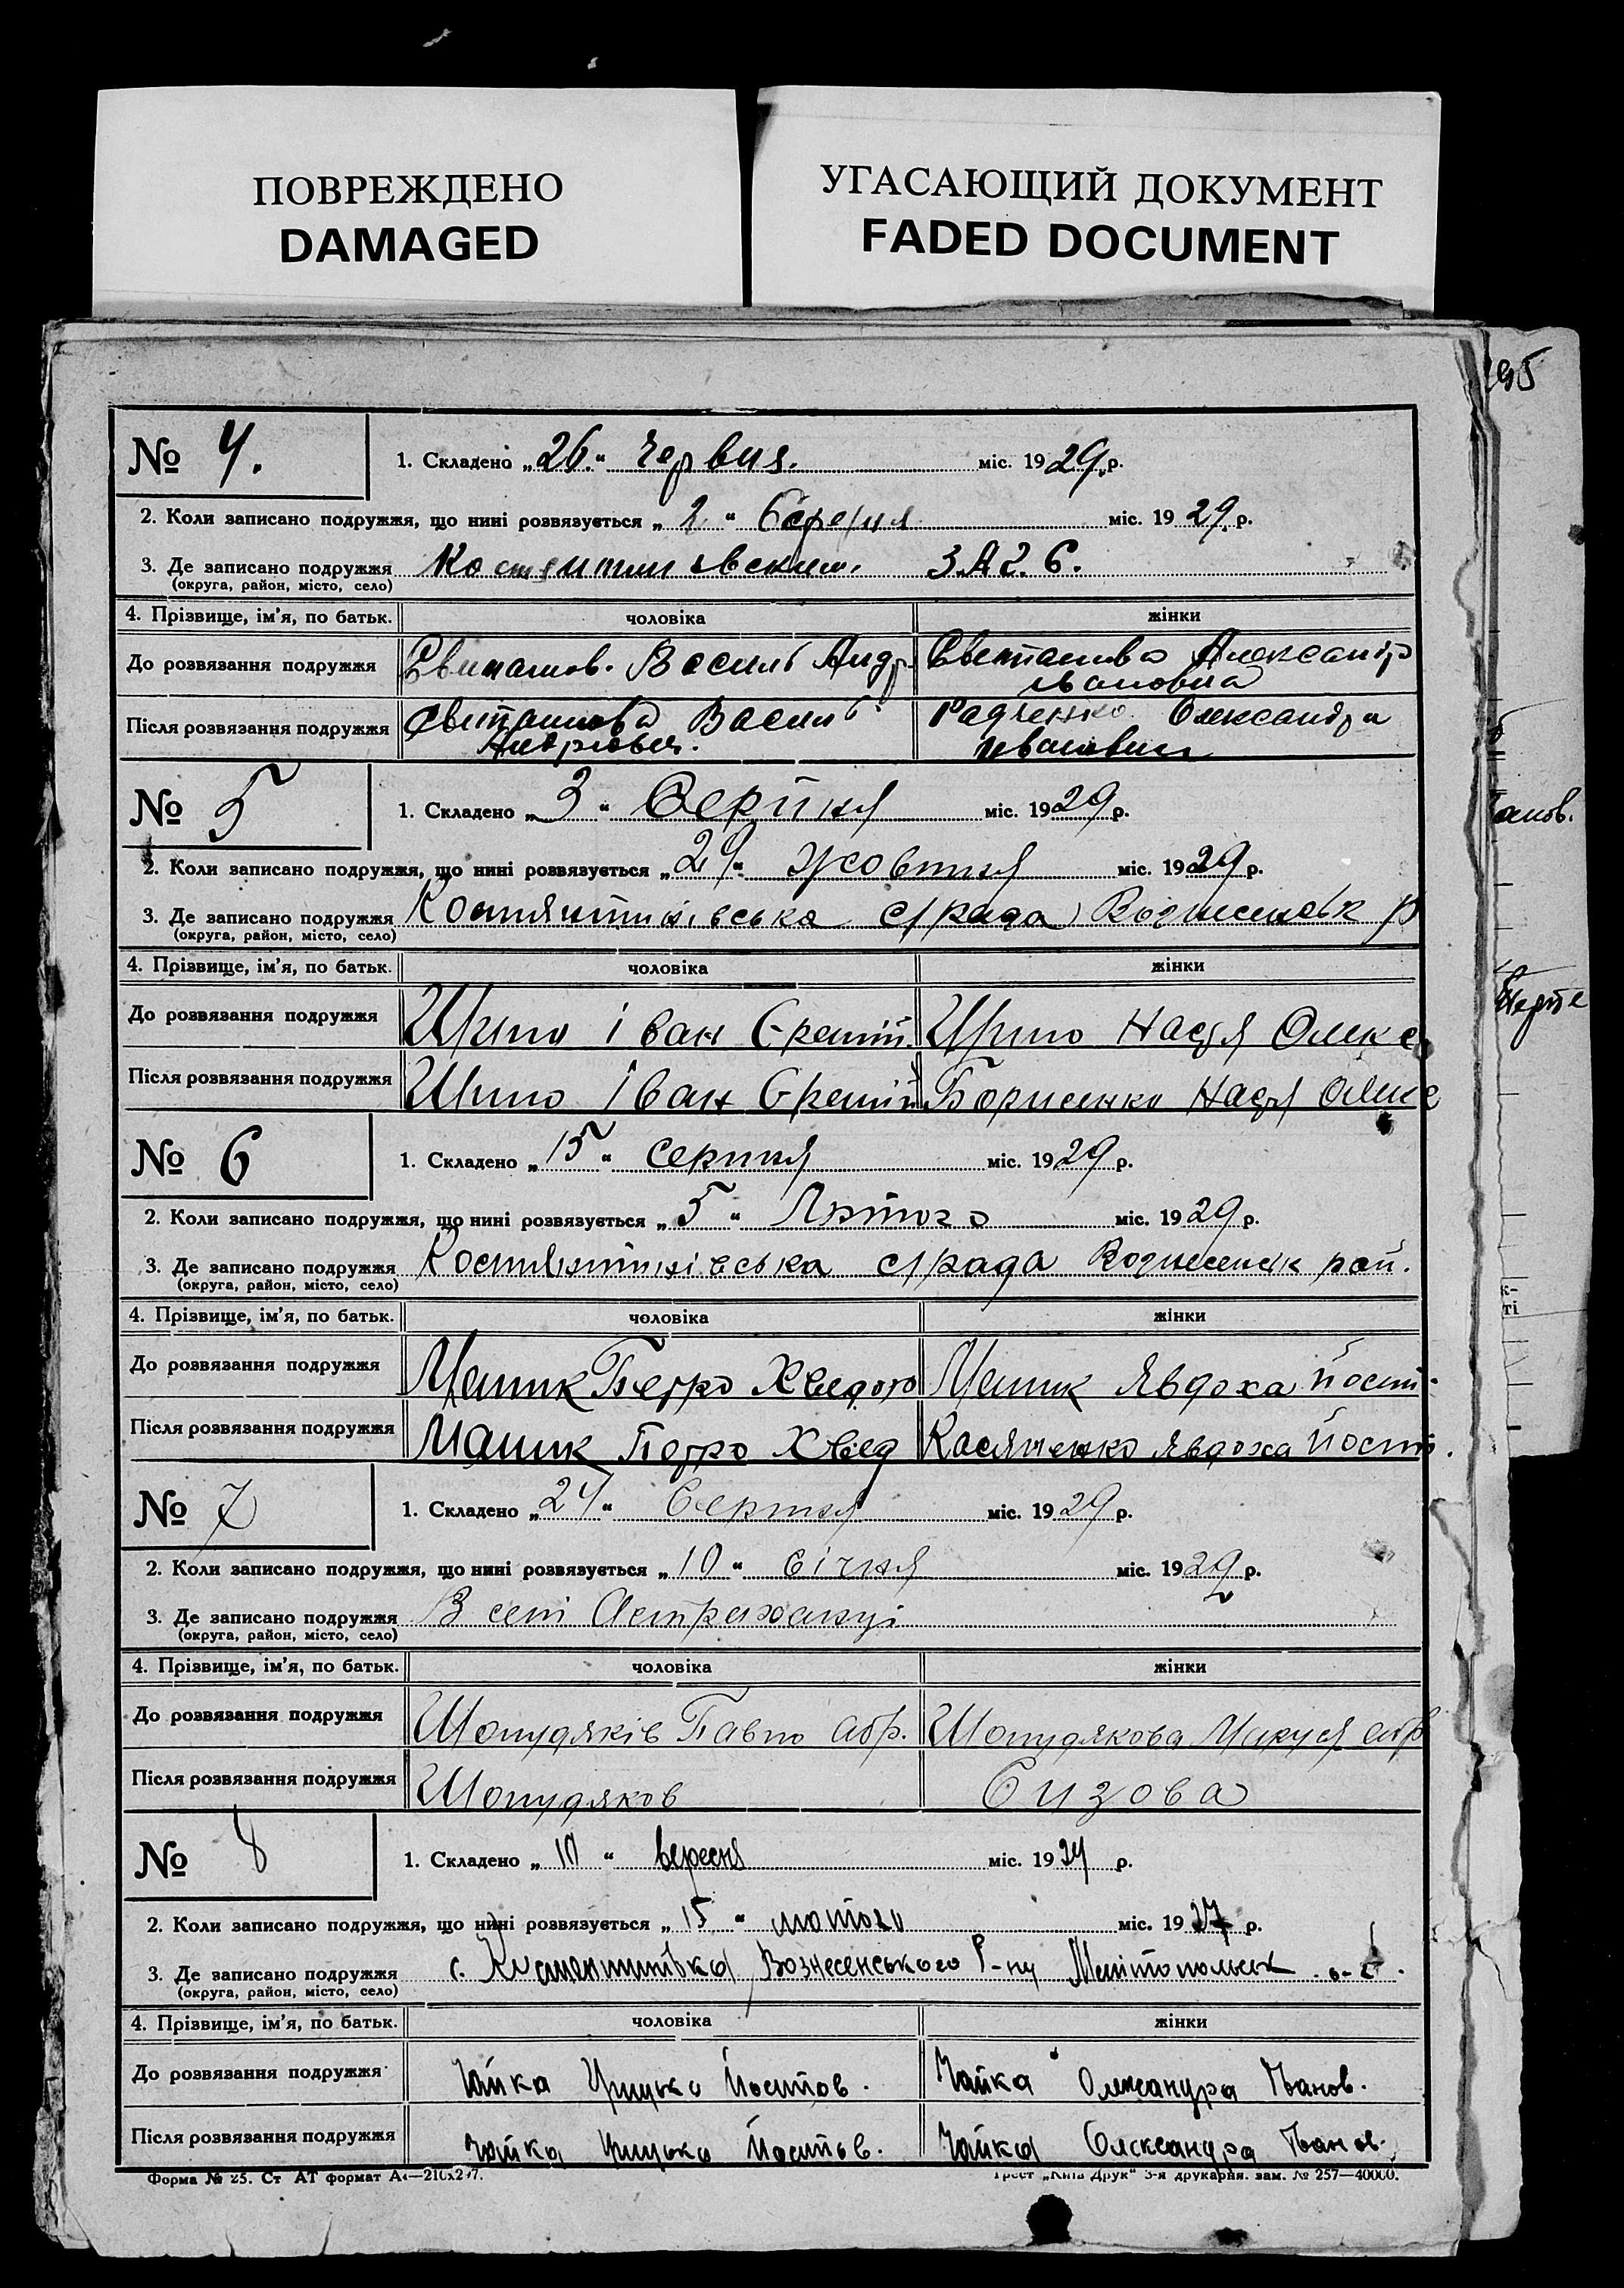 ПОВРЕЖДЕНО
DAMAGED
УГАСАЮЩИЙ ДОКУМЕНТ
FADED DOCUMENT
195
№ 4.
1. Складено „26.“ червня. міс. 1929 р.
2. Коли записано подружжя, що нині розвязується „2“ Березня міс. 1929 р.
3. Де записано подружжя ЗАГС.
(округа, район, місто, село)
4. Прізвище, ім'я, по батьк. чоловіка жінки
До розвязання подружжя Василь Андр. Александр
Ивановна
Після розвязання подружжя Василь Радченко Олександра
Андрієвич.
№ 5
1. Складено „3“ Серпня міс. 1929 р.
2. Коли записано подружжя, що нині розвязується „24“ жовтня міс. 1929 р.
3. Де записано подружжя Костянтинівська с/рада Вознесенськ р
(округа, район, місто, село)
4. Прізвище, ім'я, по батьк. чоловіка жінки
До розвязання подружжя Іван Настя Олекс
Після розвязання подружжя Іван Борисенко Настя Олекс
№ 6
1. Складено „15“ серпня міс. 1929 р.
2. Коли записано подружжя, що нині розвязується „5“ Лютого міс. 1929 р.
3. Де записано подружжя Костянтинівська с/рада Вознесенськ рай.
(округа, район, місто, село)
4. Прізвище, ім'я, по батьк. чоловіка жінки
До розвязання подружжя Мацик Петро Хведор Мацик Явдоха Йосип.
Після розвязання подружжя Мацик Петро Хвед Касяненко Явдоха Йосип.
№ 7
1. Складено „24“ Серпня міс. 1929 р.
2. Коли записано подружжя, що нині розвязується „10“ січня міс. 1929 р.
3. Де записано подружжя В селі Астраханці
(округа, район, місто, село)
4. Прізвище, ім'я, по батьк. чоловіка жінки
До розвязання подружжя Шопудяків Павло Абр. Шопудякова Маруся
Після розвязання подружжя Шопудяков Сизова
№ 8
1. Складено „10“ вересня міс. 1929 р.
2. Коли записано подружжя, що нині розвязується „15“ лютого міс. 1927 р.
3. Де записано подружжя с. Костянтинівка Вознесенського Р-ну Мелітопольськ. о-
(округа, район, місто, село)
4. Прізвище, ім'я, по батьк. чоловіка жінки
До розвязання подружжя Чайка Грицько Йосипов. Чайка Олександра Іванов.
Після розвязання подружжя Чайка Грицько Йосипов. Чайка Олександра Іванов.
Форма № 25. Ст АТ формат А4—210х297. Трест „Київ Друк“ 3-я друкарня. зам. № 257—40000.